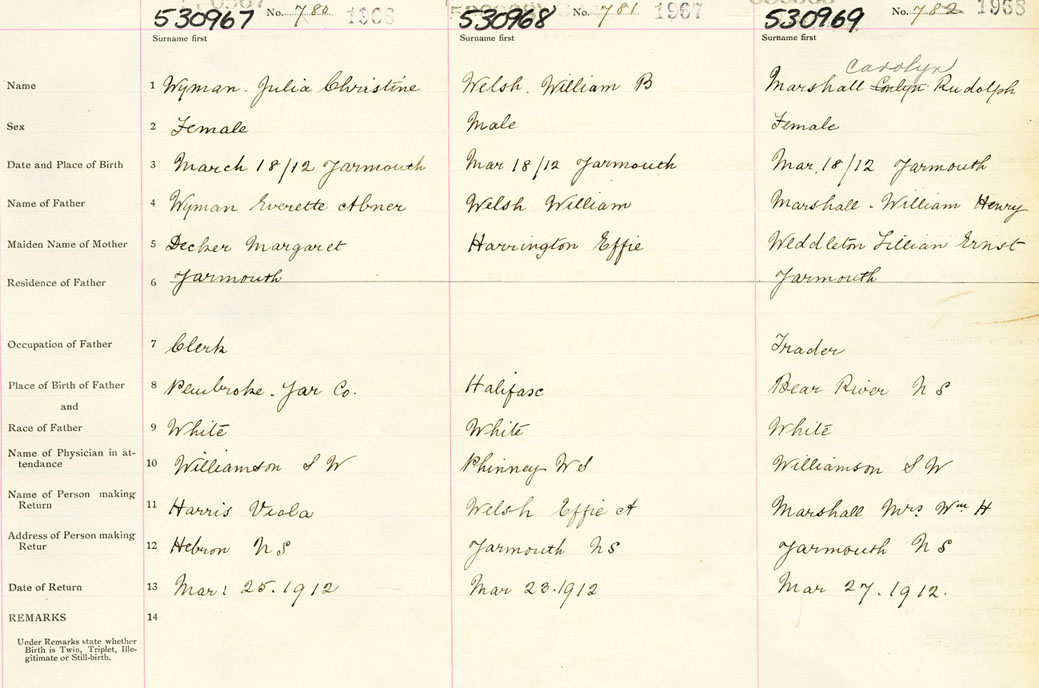 530967 No. 780 1966 530968 No. 781 1967 530969 No. 782 1968
Surname first Surname first Surname first
Carolyn
Name 1 Wyman. Julia Christine Welsh. William B Marshall Conlyn Rudolph
Sex 2 Female Male Female
Date and Place of Birth 3 March 18/12 Yarmouth Mar 18/12 Yarmouth Mar. 18/12 Yarmouth
Name of Father 4 Wyman Everette Abner Welsh William Marshall. William Henry
Maiden Name of Mother 5 Decker Margaret Harrington Effie Weddleton Lillian Ernst
Residence of Father 6 Yarmouth Yarmouth
Occupation of Father 7 Clerk Trader
Place of Birth of Father 8 Pembroke. Yar Co. Halifax Bear River N S
and
Race of Father 9 White White White
Name of Physician in at-
tendance 10 Williamson S W Phinney W S Williamson S W
Name of Person making
Return 11 Harris Viola Welsh Effie A Marshall Mrs Wm H
Address of Person making
Retur 12 Hebron N S Yarmouth N S Yarmouth N S
Date of Return 13 Mar: 25. 1912 Mar 23. 1912 Mar 27. 1912.
REMARKS 14
Under Remarks state whether
Birth is Twin, Triplet, Ille-
gitimate or Still-birth.